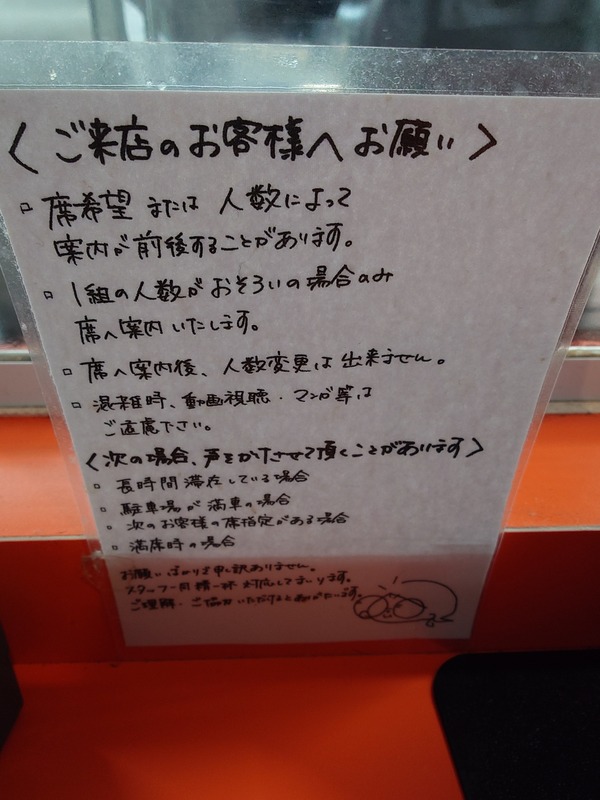 〈ご来店のお客様へ お願い〉
▫ 席希望 または 人数によって
案内が前後することがあります。
▫ 1組の人数がおそろいの場合のみ
席へ案内いたします。
▫ 席へ案内後、人数変更は出来ません。
▫ 混雑時、動画視聴・マンガ等は
ご遠慮下さい。
〈次の場合、声をかけさせて頂くことがあります〉
▫ 長時間滞在している場合
▫ 駐車場が満車の場合
▫ 次のお客様の席指定がある場合
▫ 満席時の場合
お願いばかりを申し訳ありません。
スタッフ一同精一杯対応してまいります。
ご理解・ご協力いただけると ありがたいです。